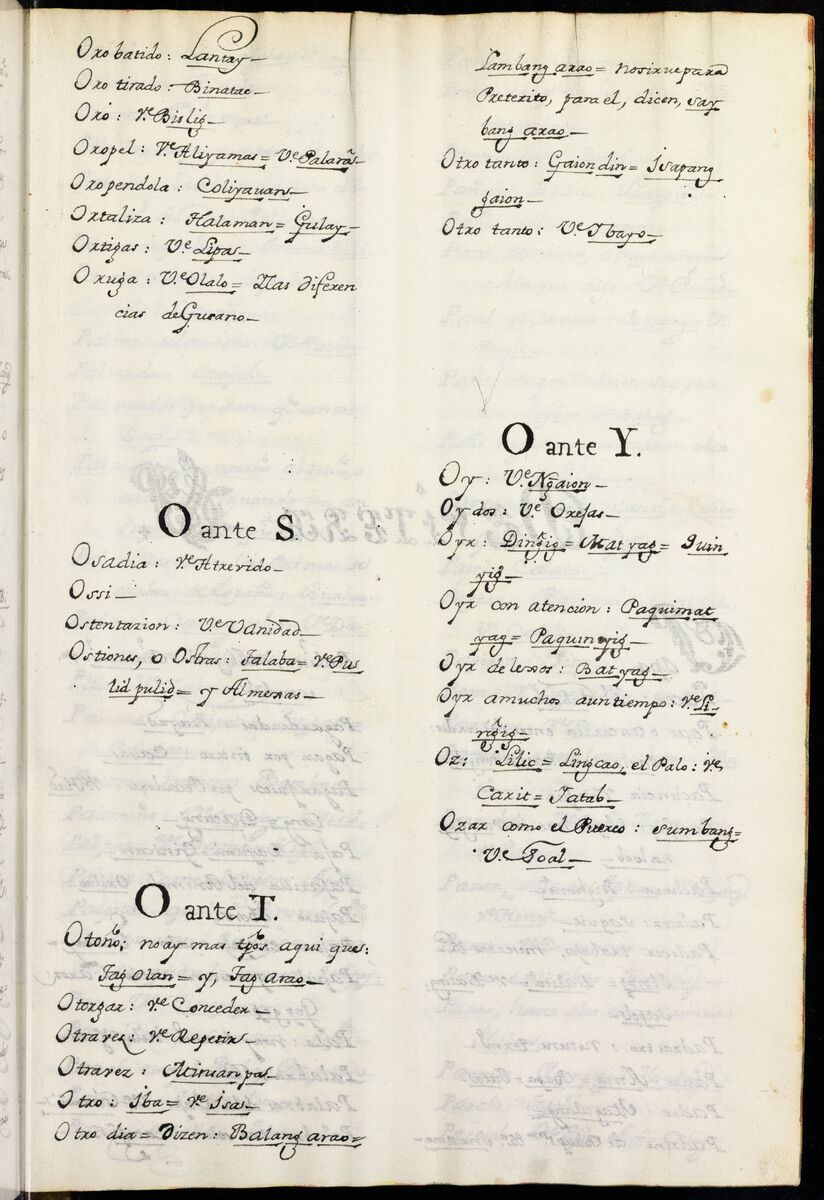 Oro batido: Lantay
Oro tirado: Binatac
Oró: Ve. Bislig
Oropel: Ve. Aliyamas = Ve. Palarã
Oropendola: Coliyauan
Ortaliza: Halaman = Gulay
Ortigas: Ve. Lipas
Oruga: Ve. Olalo = Ylas diferen
cias deGusano
O ante S.
Osadia: Ve. Atrevido
Ossi
Ostentazion: Ve. Vanidad
Ostiones, o Ostras: Talaba = Ve. Pus
lid pulid = y Almexas
O ante T.
Otoño; no ay mas tpos. aqui ques:
Tag olan = y, Tag arao
Otorgar: Ve. Conceder
Otra vez: Ve. Repetir
Otra vez: Atiuan pa
Otro: Iba = Ve. Isa
Otro dia = Dizen: Balang arao =
Lambang arao = no sirue para
Preterito, para el, dicen, say
bang arao
Otro tanto: Gaion din = Isapang
gaion
Otro tanto: Ve. Ybayo
O ante Y.
Oy: Ve. Ngaion
Oydos: Ve. Orejas
Oyr: Dingig = Mat yag = Quin
yig
Oyr con atencion: Paquimat
yag = Paquin yig
Oyr de lexos: Bat yag
Oyr amuchos auntiempo: Ve. Li
ngig
Oz: Lilic = Lingcao, el Palo: Ve.
Carit = Tatab
Ozar como el Puerco: Sumbang =
Ve. Toal